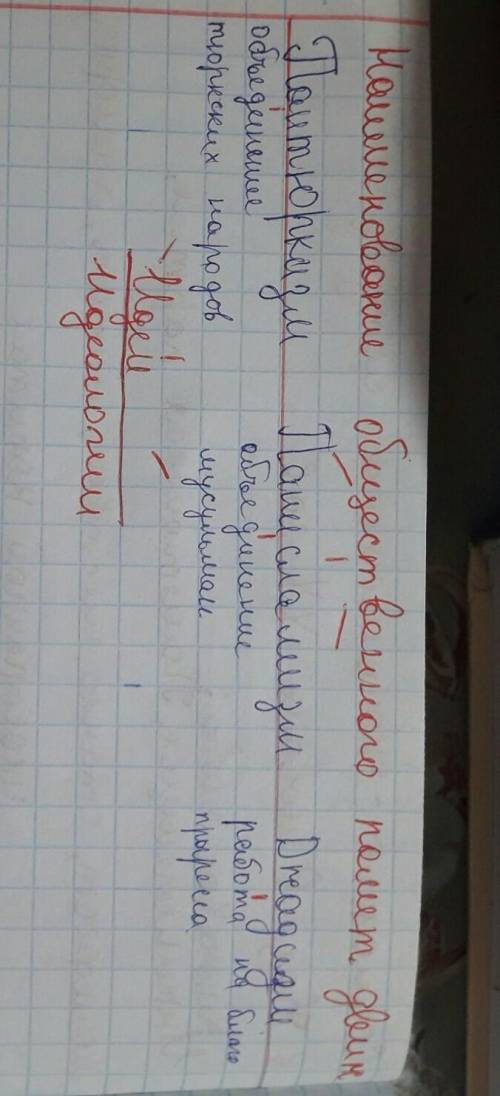 Наименование общественного полит движ
Пантюркизм Панисламизм Джадидизм
объединение объединение работа на благо
тюркских народов мусульман прогресса
Идеи
Идеологии